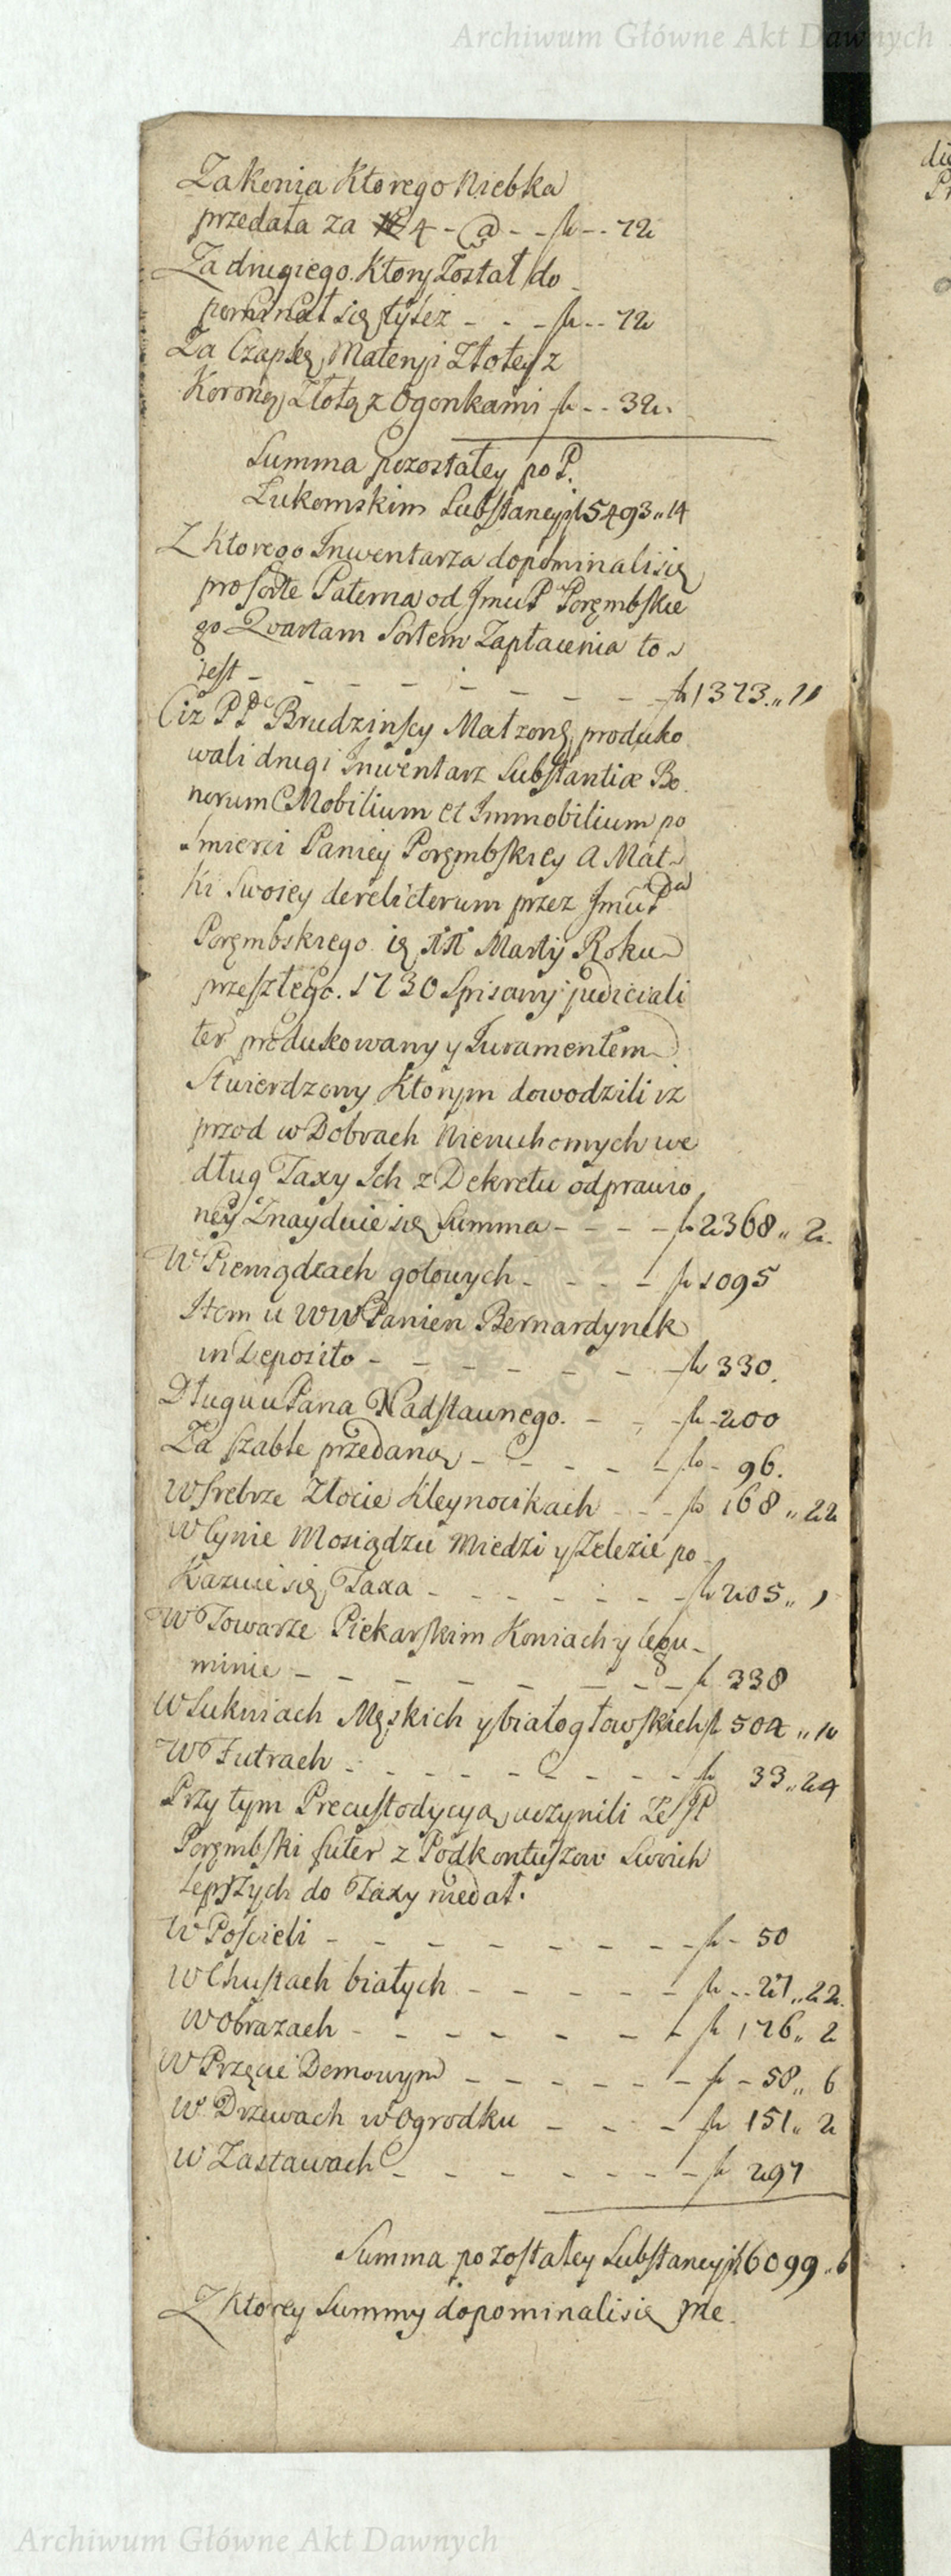 Archiwum Główne Akt Dawnych
Za konia Ktorego Niebka
przedała za 4 - @ - - fl - - 72
Za drugiego Ktory Został do
pominał się tyleż - - - fl - - 72
Za Czapkę Materyi Złotey z
Koroną Złotą z Ogonkami fl - - 32.
Summa pozostałey po P.
Łukomskim Substancyi fl 5493 „ 14
Z Ktorego Inwentarza dopominali się
pro sorte Paterna od Jmu P Porębskie
go Quartam Sortem Zapłacenia to
iest - - - - - - - - fl 1373 „ 11
Ciż PP Brudzińscy Małżonk. produko
wali drugi Inwentarz Substantiæ Bo
norum Mobilium et Immobilium po
Smierci Paniey Porębskiey a Mat
ki Swoiey derelictorum przez Jmu Pa
Porębskiego Marty Roku
przeszłego. 1730 Spisany judiciali
ter produkowany y Juramentem
Stwierdzony Ktorym dowodzili iż
przod w Dobrach Nieruchomych we
dług Taxy Ich z Dekretu odprawio
ney Znayduie się Summa - - - - fl 2368 „ 2.
W Pieniądzach gotowych - - - - fl 1095
Item u WW Panien Bernardynek
in Deposito - - - - - - - fl 330.
Długu u Pana Nadstawnego. - - - fl - 200
Za szable przedaną - - - - - fl - 96.
W Srebrze Złocie Kleynocikach - - - fl 168 „ 22
W Cynie Mosiądzu Miedzi y Zelezie po
kazuie się Taxa - - - - - - fl 205 „ 1
W Towarze Piekarskim Koniach y legu
minie - - - - - - - - fl 338
W Sukniach Męskich y białogłowskich fl 504 „ 10
W Futrach - - - - - - - - fl 33 „ 24
Przy tym Precustodycyą uczynili Ze JP
Porębski futer z Podkontuszow Swoich
lepszych do Taxy niedał.
W Pościeli - - - - - - - - fl - 50
W Chustach białych - - - - - fl - - 27 „ 22.
W Obrazach - - - - - - - fl 176 „ 2
W Przęcie Domowym - - - - - - fl - 58 „ 6
W Drzewach w Ogrodku - - - fl 151 „ 2
W Zastawach - - - - - - - fl 297
Summa pozostałey Substancyi fl 6099 „ 6
Z Ktorey Summy dopominali się
Archiwum Główne Akt Dawnych